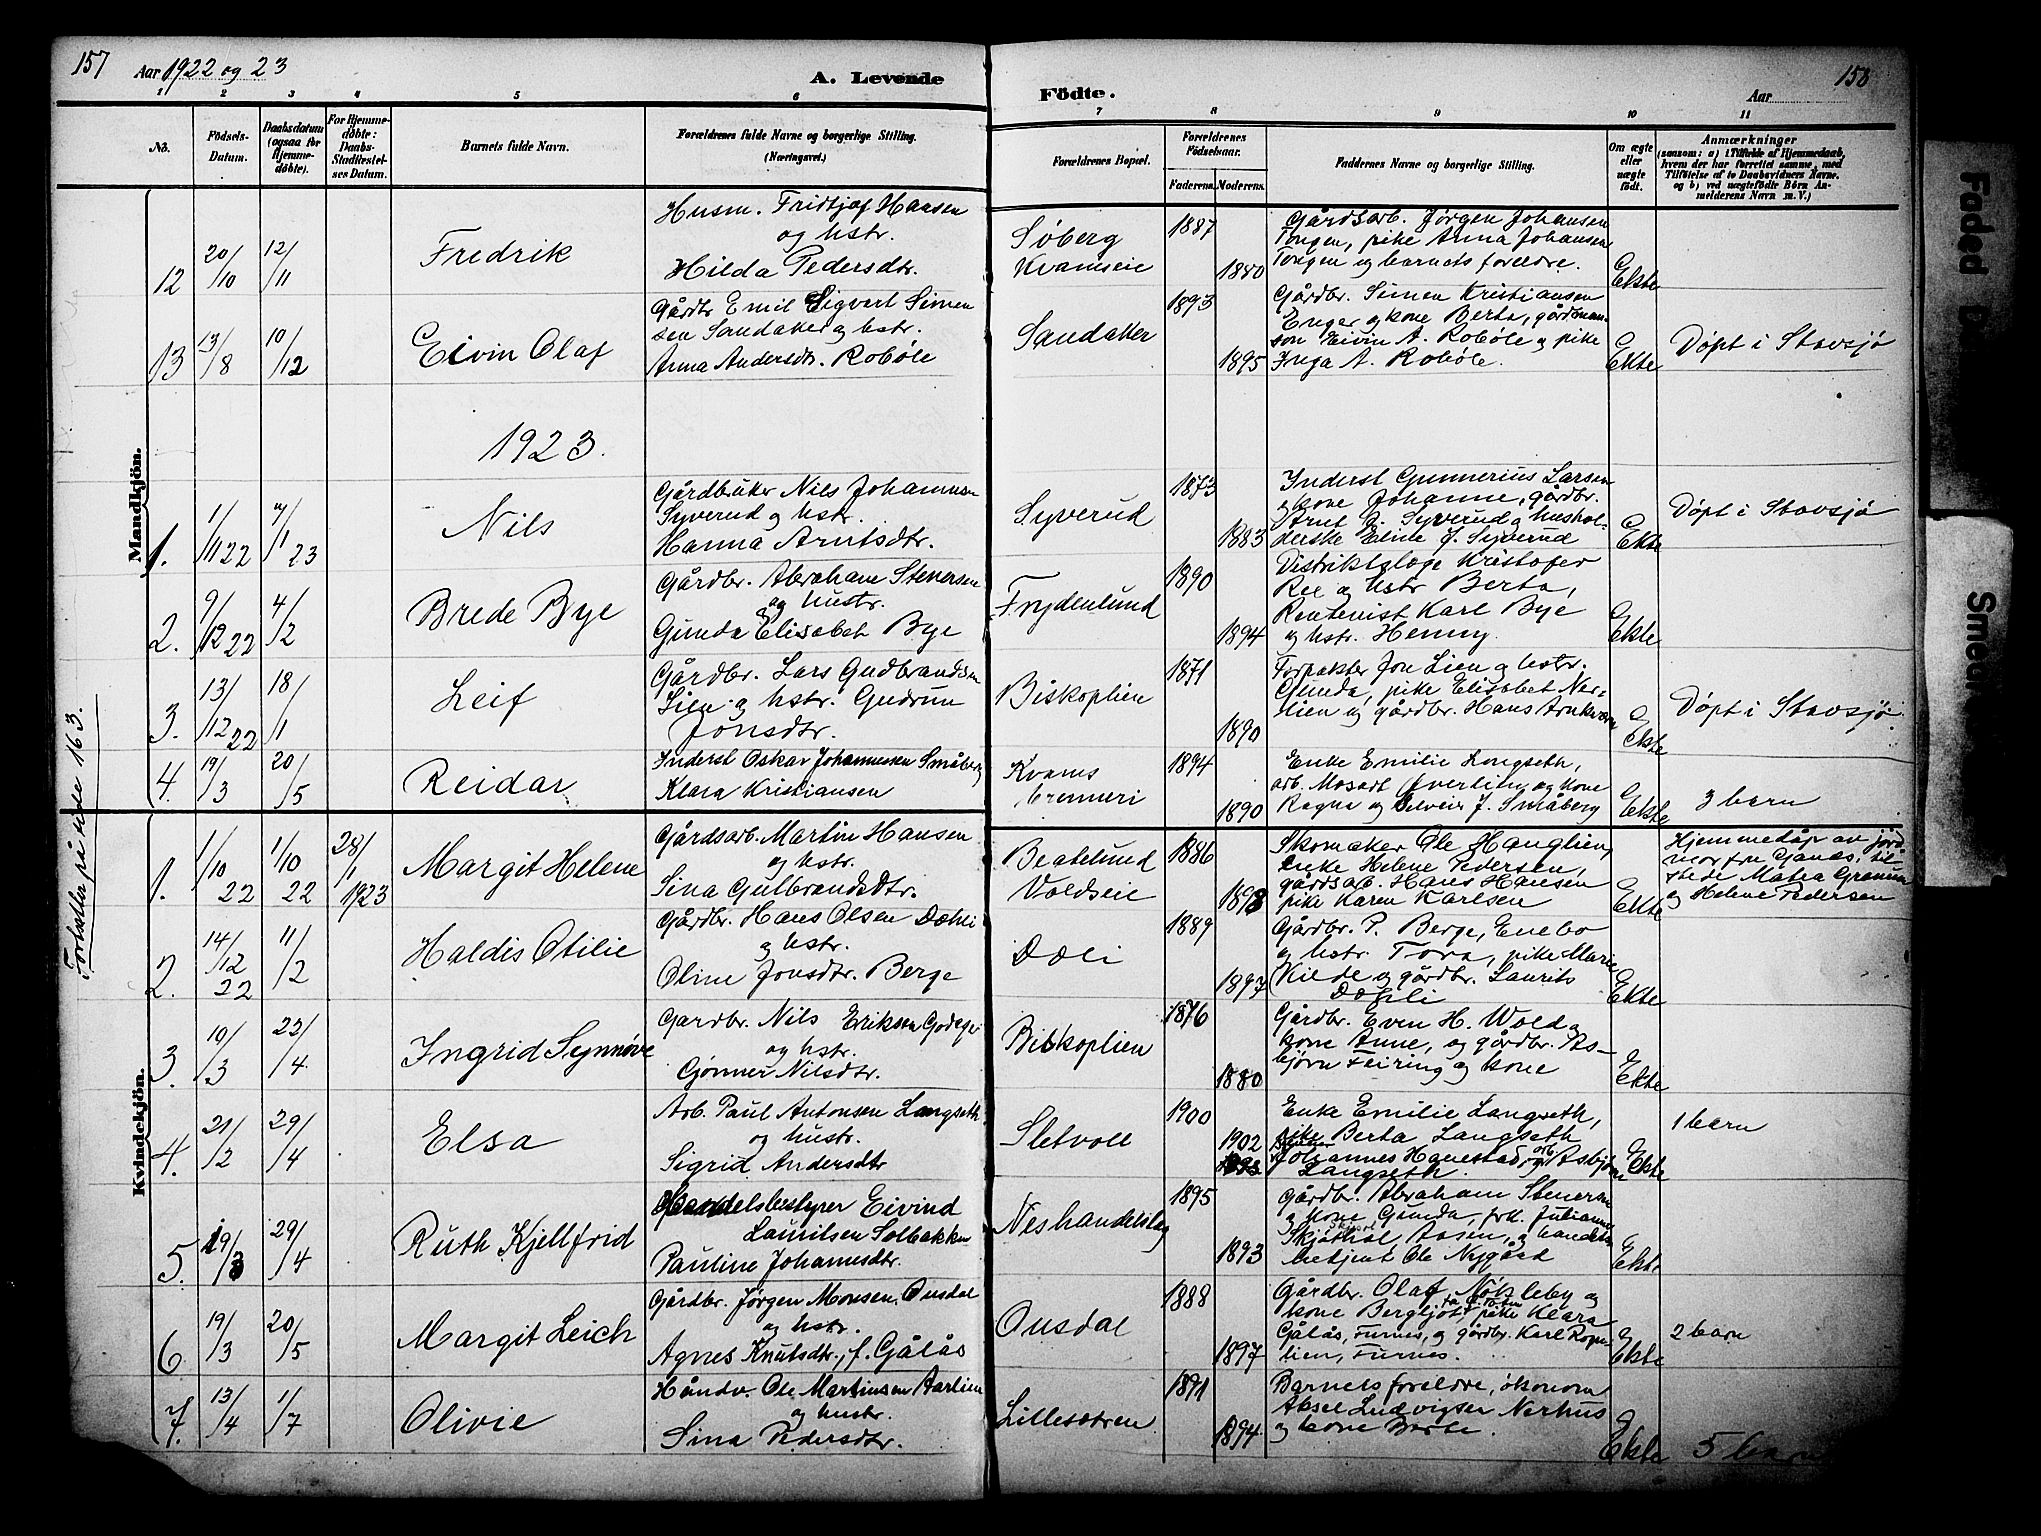 157
Aar 1922 og 23
A. Levende
Födte.
Aar
158
1 2 3 4 5 6 7 8 9 10 11
No.
Födsels-
Datum.
Daabsdatum
(ogsaa for
Hjemme-
døbte).
For Hjemme-
døbte:
Daabs-
Stadfæstel-
ses Datum.
Barnets fulde Navn.
Forældrenes fulde Navne og borgerlige Stilling.
(Næringsvei.)
Forældrenes Bopæl.
Forældrenes
Födselsaar.
Faderens. Moderens.
Faddernes Navne og borgerlige Stilling.
Om ægte
eller
uægte
født.
Anmærkninger
(saasom: a) i Tilfælde af Hjemmedaab,
hvem der har forrettet samme, med
Tilføielse af to Daabsvidners Navne,
og b) ved uægtefødte Börn An-
melderens Navn m. V.)
Mandkjön.
12
20/10
12/11
Fredrik
Husm. Fridtjof Hansen
og hstr.
Hilda Pedersdtr.
Söberg
Kvamseie
1887
1880
Gårdsarb. Jørgen Johansen
Tongen, pike Anna Johansen
Tongen og barnets foreldre.
Ekte
13
13/8
10/12
Eivin Olaf
Gårdbr. Emil Sigvart Simen
sen Sandaker og hstr.
Anna Andersdtr. Robøle
Sandaker
1893
1895
Gårdbr. Simen Kristiansen
Enger og kone Berta, gårdman-
son Eivin A. Robøle og pike
Inga A. Robøle.
Ekte
Døpt i Stavsjø
1923.
1.
1/11 22
7/1 23
Nils
Gårdbruker Nils Johannsen
Syverud og hstr.
Hanna Arntsdtr.
Syverud
1873
1883
Inderst Gunnerius Larsen
og kone Johanne, gårdbr.
Arnt J. Syverud og hushol-
derske Eline J. Syverud
Ekte
Døpt i Stavsjø
2.
9/12 22
4/2
Brede Bye
Gårdbr. Abraham Stenersen
og hustr.
Gunda Elisabet Bye
Frydenlund
1890
1894
Distriktslæge Kristofer
Ree og hstr Berta,
Rentenist Karl Bye
og hstr. Henny.
Ekte
3.
13/12 22
18/1
Leif
Gårdbr. Lars Gudbrandsen
Lien og hstr. Gudrun
Jonsdtr.
Biskoplien
1871
1890
Forpakter Jon Lien og hstr.
Gunda, pike Elisabet Ner-
lien og gårdbr. Hans Arnkværn
Ekte
Døpt i Stavsjø.
4.
19/3
20/5
Reidar
Inderst Oskar Johannessen Småberg
Klara Kristiansen
Kvams
brenneri
1894
1890
Enke Emilie Longseth,
arb. Mosart Øverlien og kone
Ragna og Selveier J. Småberg
Ekte
3 barn
Kvindekjön.
Fortsættes på side 163.
1.
1/10 22
1/10 22
28/1 1923
Margit Helene
Gårdsarb. Martin Hansen
og hstr.
Sina Gulbrandsdtr.
Beatelund
Voldseie
1886
1893
Skomaker Ole Hanglien,
enke Helene Pedersen,
gårdsarb. Hans Hansen
pike Karen Karlsen
Ekte
Hjemmedåp av jord
mor frø Gjanæs, til-
stede Matea Granum
og Helene Pedersen
2.
14/12 22
11/2
Haldis Otilie
Gårdbr. Hans Olsen Dæhli
og hstr.
Oline Jonsdtr. Berge
Dæli
1889
1897
Gårdbr. P. Berge, Enebo
og hstr. Tora, pike Marie
Kilde og gårdbr. Laurits
Dæhli
Ekte
3.
10/3
22/4
Ingrid Synnøve
Gardbr. Nils Eriksen Godager
og hstr.
Gjønner Nilsdtr.
Biskoplien
1876
1880
Gårdbr. Even H. Wold og
kone Anne, og gårdbr. As-
bjørn Feiring og kone
Ekte
4.
21/2
29/4
Elsa
Arb. Paul Antonsen Langseth
og hustr.
Sigrid Andersdtr
Sletvold
1900
1902
Enke Emilie Langseth,
pike Berta Langseth
Johannes Hanestad, og arb. Asbjørn
Langseth.
Ekte
1 barn
5.
19/3
29/4
Ruth Kjellfrid
Handelsbestyrer Eivind
Lauritsen Solbakken
Pauline Johannsdtr.
Neshandelslag
1895
1893
Gårdbr. Abraham Stenersen
og kone Gunda, frk. Julianne
Skjøthol Aasen, og handels
betjent Ole Nygård
Ekte
6.
19/3
20/5
Margit Leich
Gårdbr. Jørgen Monsen Onsdal
og hstr.
Agnes Knutsdtr., f. Gålås
Onsdal
1888
1897
Gårdbr. Olaf Nøkleby og
kone Bergljot, pike Klara
Gålås, Furnes, og gårdbr. Karl Rogn-
lien, Furnes.
Ekte
2 barn
7.
13/4
1/7
Olivie
Håndv. Ole Martinsen Aarlien
og hustr.
Sina Pedersdtr.
Lillesætren
1891
1894
Barnets foreldre, økonom
Aksel Ludvigsen Nerhus
og kone Berte.
Ekte
5 barn
Faded